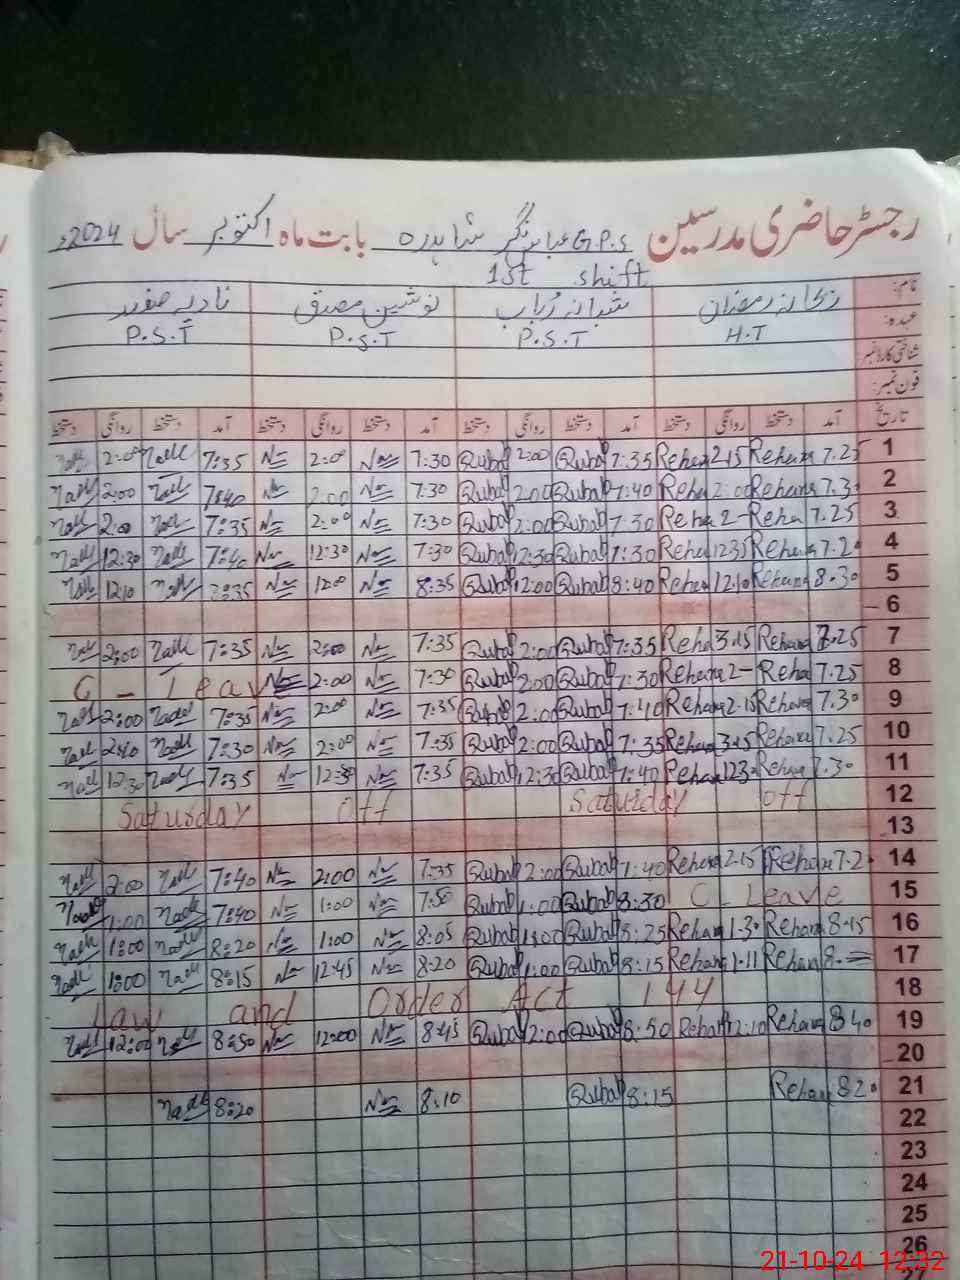 رجسٹر حاضری مدرسین G.P.S عباس نگر شاہدرہ بابت ماہ اکتوبر سال 2024ء
1st shift
نام: ریحانہ رمضان شبانہ رباب نوشین مصدق نادیہ صفدر
عہدہ: H.T P.S.T P.S.T P.S.T
شناختی کارڈ نمبر
فون نمبر:
تاریخ آمد دستخط روانگی دستخط آمد دستخط روانگی دستخط آمد دستخط روانگی دستخط آمد دستخط روانگی دستخط
1 7.25 Rehana 2.15 Rehana 7:35 Rubab 2:00 Rubab 7:30 2:00 7:35 2:00
2 7.3 Rehana 2:00 Reha 7:40 Rubab 2:00 Rubab 7:30 2:00 7:40 2:00
3 7.25 Reha 2- Reha 7:30 Rubab 2:00 Rubab 7:30 2:00 7:35 2:00
4 7.2 Rehana 1235 Reha 7:30 Rubab 12:30 Rubab 7:30 12:30 7:40 12:30
5 8.30 Rehana 12.10 Rehan 8:40 Rubab 12:00 Rubab 8:35 12:00 12:10
6
7 7.25 Rehana 3.15 Reha 7:35 Rubab 2:00 Rubab 7:35 2:00 7:35 2:00
8 7.25 Reha 2- Rehana 7:30 Rubab 2:00 Rubab 7:30 2:00 C - Leav
9 7.30 Rehana 2.15 Rehana 7:40 Rubab 2:00 Rubab 7:35 2:00 7:35 2:00
10 7.25 Rehana 3.15 Rehan 7:35 Rubab 2:00 Rubab 7:35 2:00 7:30
11 7.30 Rehana 123 Rehan 7:40 Rubab 12:30 Rubab 7:35 12:30 7:35 12:30
12 Saturday off Saturday off
13
14 7.2 Rehana 2.15 Rehana 7:40 Rubab 2:00 Rubab 7:35 2:00 7:40 2:00
15 C. Leave 8:30 Rubab 1:00 Rubab 7:50 1:00 7:40 1:00
16 8.15 Rehana 1.30 Rehan 8:25 Rubab 1:00 Rubab 8:05 1:00 8:20 1:00
17 8. Rehan 1.11 Rehan 8:15 Rubab 1:00 Rubab 8:20 12:45 8:15 1:00
18 Law and Order Act 144
19 840 Rehana 12:10 Rehan 8:50 Rubab 12:00 Rubab 8:45 12:00 8:50 12:00
20
21 820 Rehan 8:15 Rubab 8:10 8:20
22
23
24
25
26
27
21-10-24 12:32